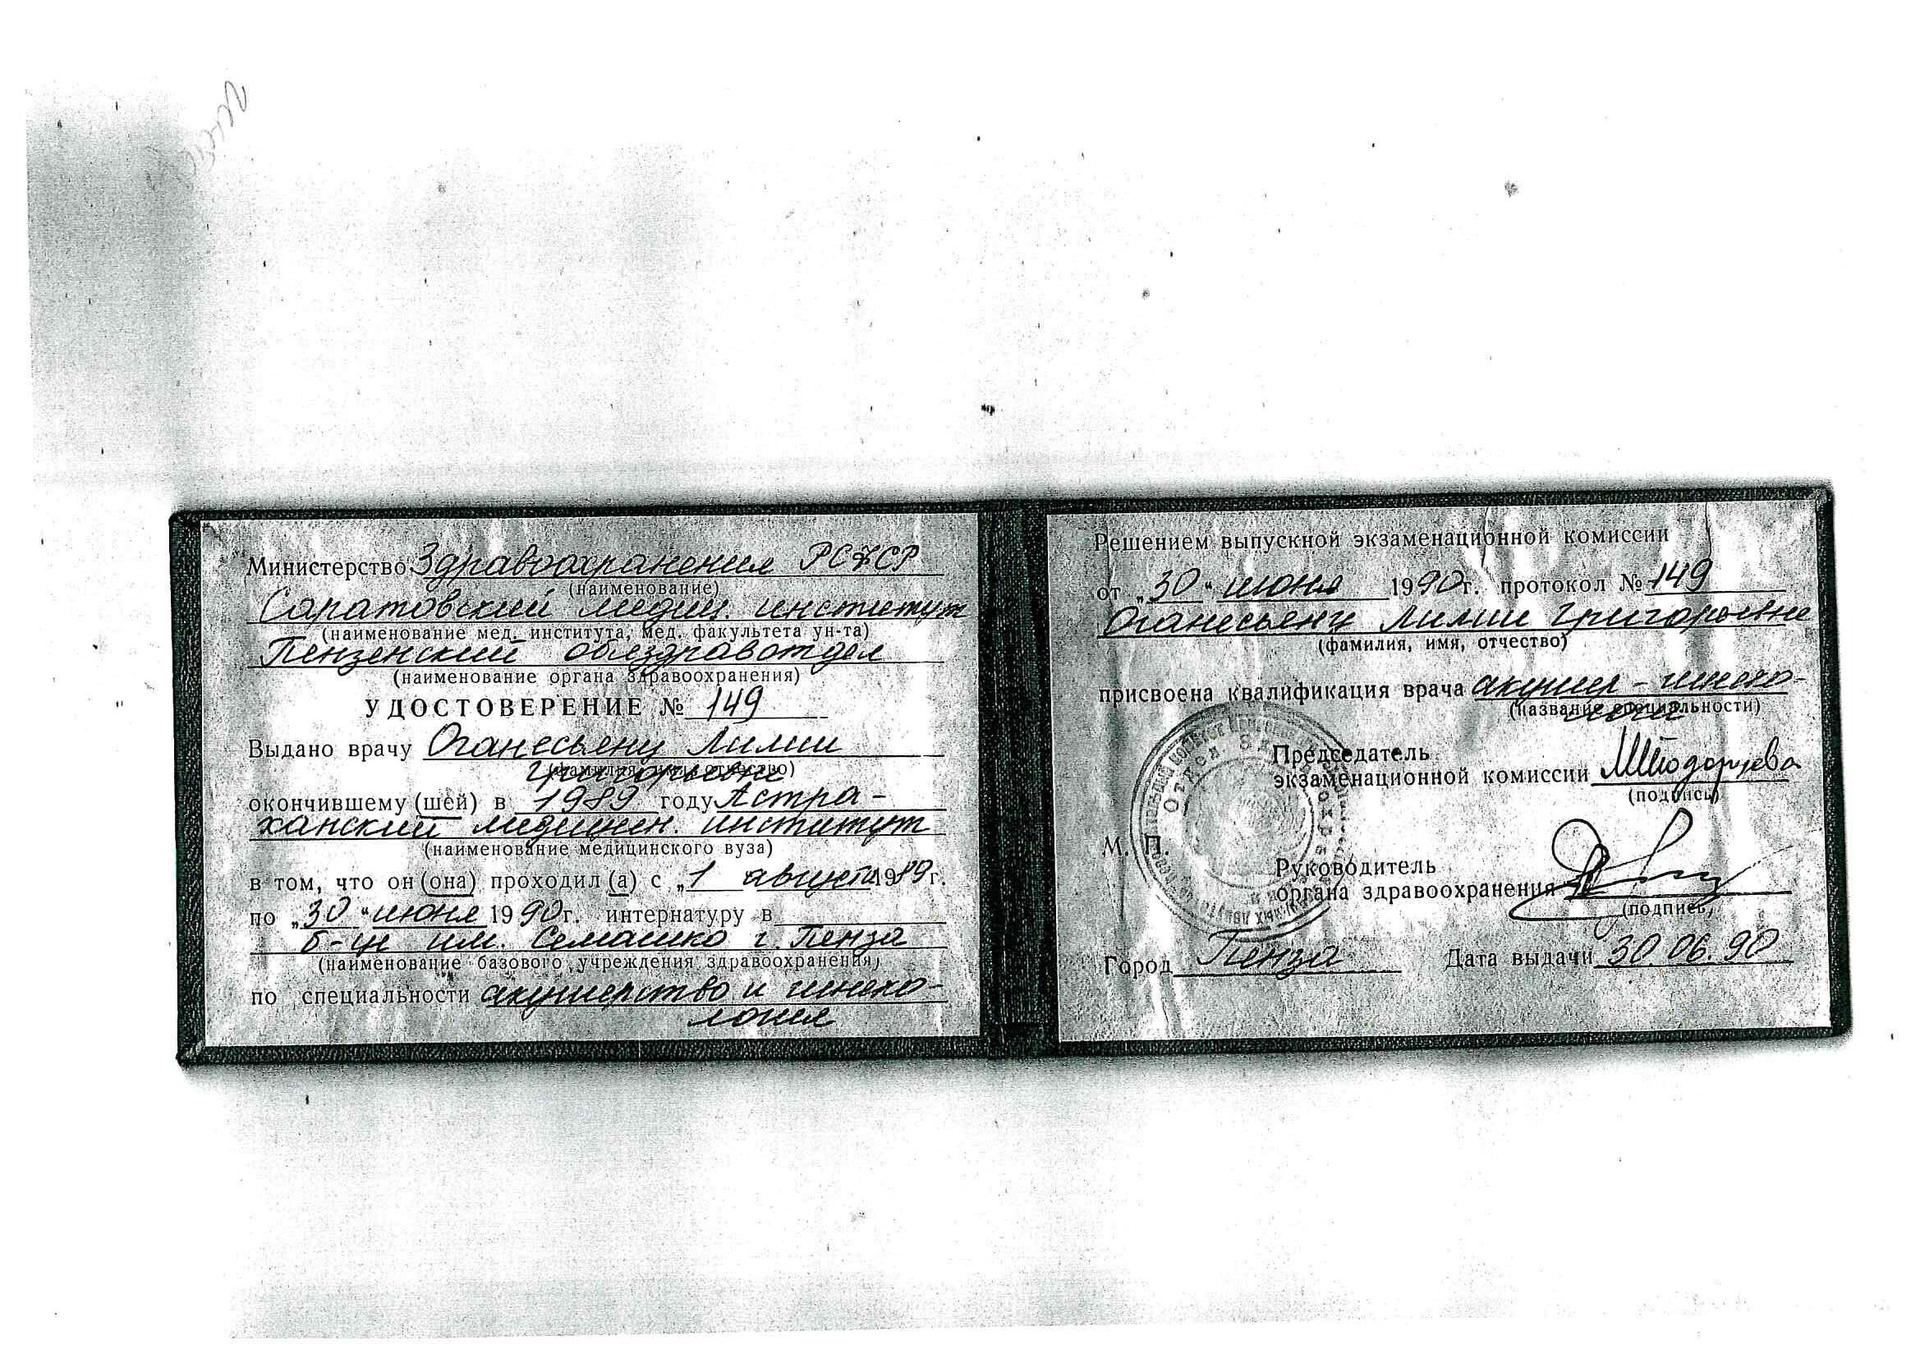 Министерство Здравоохранения РСФСР
(наименование)
Саратовский медиц. институт
(наименование мед. института, мед. факультета ун-та)
Пензенский облздравотдел
(наименование органа здравоохранения)
УДОСТОВЕРЕНИЕ № 149
Выдано врачу Оганесьянц Лилии
Григорьевне
(фамилия, имя, отчество)
окончившему (шей) в 1989 году Астра-
ханский медицен. институт
(наименование медицинского вуза)
в том, что он (она) проходил (а) с „1 августа 1989г.
по „30 “ июня 1990г. интернатуру в
б-це им. Семашко г. Пенза
(наименование базового учреждения здравоохранения)
по специальности акушерство и гинеко-
логия
Решением выпускной экзаменационной комиссии
от „30“ июня 1990г. протокол № 149
Оганесьянц Лилии Григорьевне
(фамилия, имя, отчество)
присвоена квалификация врача акушер - гинеко-
лога
(название специальности)
Председатель
экзаменационной комиссии
(подпись)
М. П.
Руководитель
органа здравоохранения
(подпись)
Город Пенза Дата выдачи 30.06.90